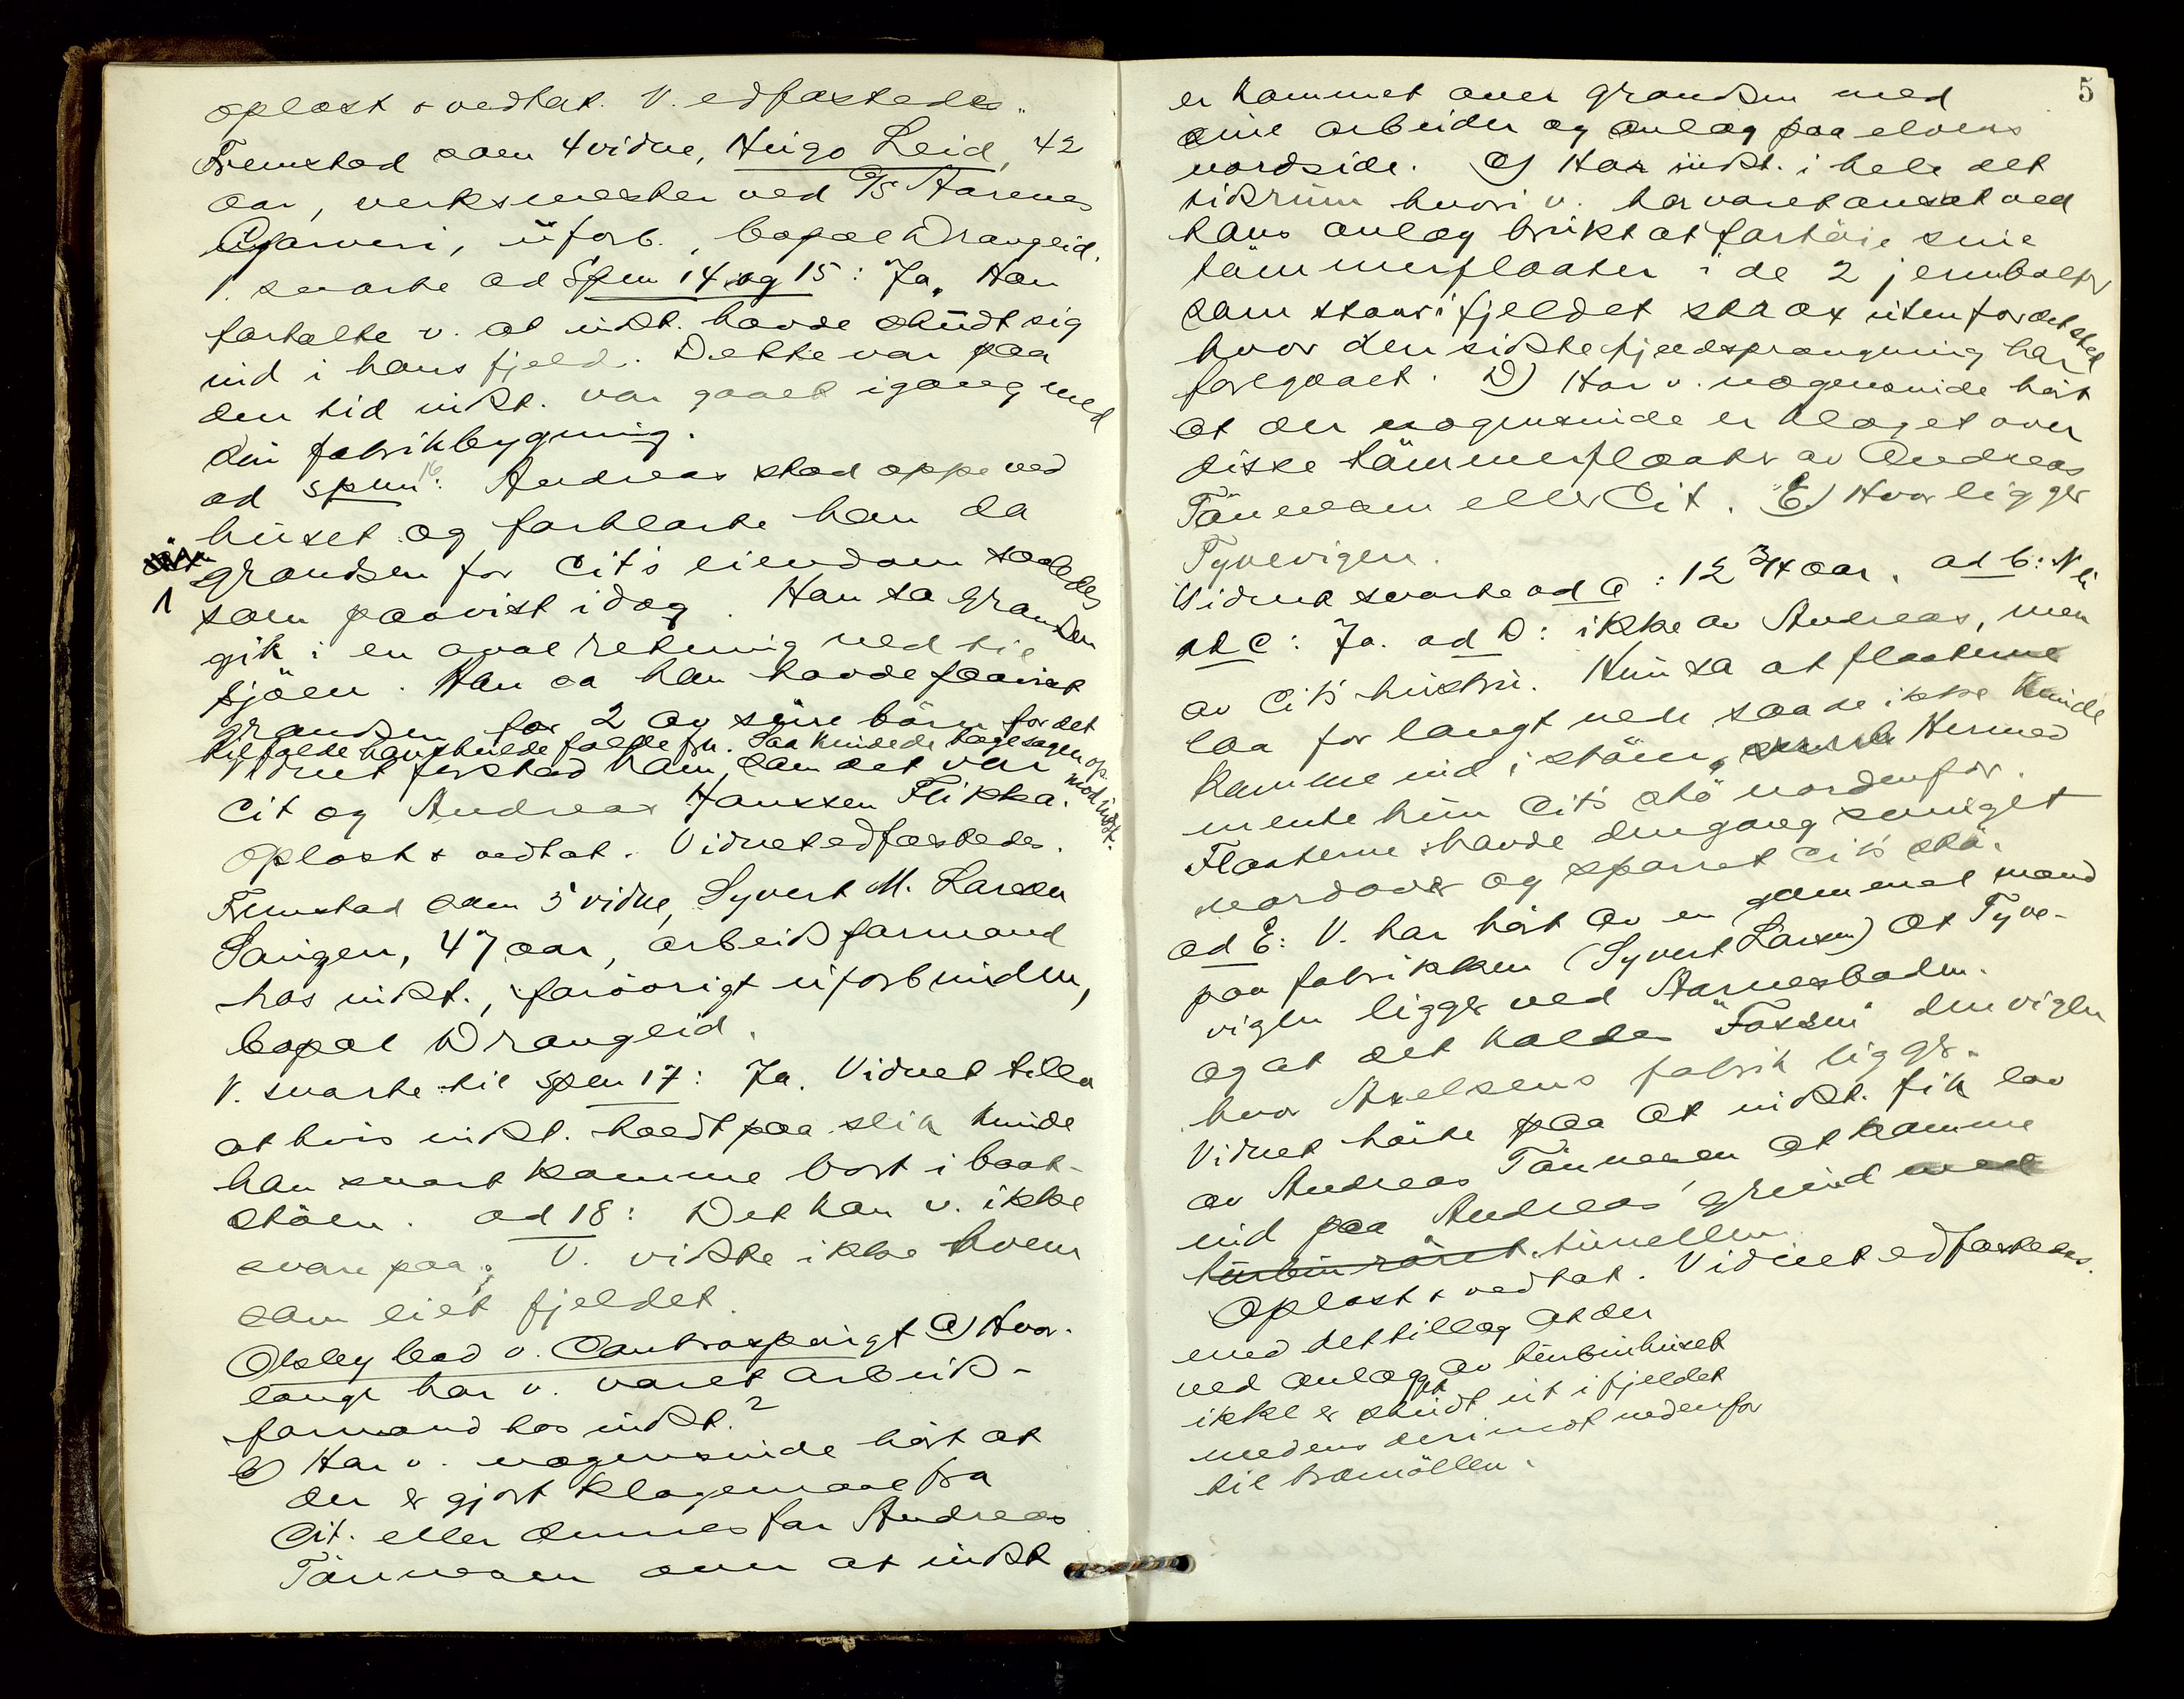 oplæst & vedtat. V. edfæstedes.
Fremstod som 4 vidne, Hugo Leid, 42
aar, verksmester ved A/S Aarenes
Garveri, uforb., bopæl Drangeid.
V. svarte ad Spm 14 og 15: Ja. Han
fortalte v. at indst. havde skudt sig
ind i hans fjeld. Dette var paa
den tid indst. var gaaet igang med
din fabrikbygning.
ad spm 16: Andreas stod oppe ved
huset og forklarte han da
grændsen for Cit's eiendom saaledes
som paavist idag. Han sa grændsen
gik i en oval retning ned til
sjöen. Han sa han havde paavist
grændsen for 2 av sine börn for det
tilfælde han skulde falde fra. Saa kunde de tage sagen op
mod indst.
Vidnet forstod ham, som det var
Cit og Andreas Hanssen Flikka.
Oplæst & vedtat. Vidnet edfæstedes.
Fremstod som 5 vidne, Syvert M. Larsen
47 aar, arbeidsformand
hos indst., foröorigt uforbunden,
bopæl Drangeid.
V. svarte til spm 17: Ja. Vidnet tilla
at hvis indst. holdt paa slik kunde
han snart komme bort i baat-
stöen. ad 18: Det kan v. ikke
svare paa; V. vidste ikke hvem
som eiet fjeldet.
Olsby bad v. Contraspurgt a) Hvor-
længe har v. været arbeids-
formand hos indst.?
b) Har v. nogensinde hört at
der er gjort klagemaal fra
Cit. eller dennes far Andreas
Tönnesen over at indst
5
er kommet over grændsen med
sine arbeider og anlæg paa elvens
nordside. C) Har indst. i hele det
tidsrum hvori v. har været ansat ved
hans anlæg brukt at fortöie sine
tömmerflaater i de 2 jernbolter
som staar i fjeldet strax utenfor det sted
hvor den sidste fjeldsprængning har
foregaaet. D) Har v. nogensinde hört
at der nogensinde er klaget over
disse tömmerflaater av Andreas
Tönnesen eller Cit. E) Hvor ligger
Tyvevigen.
Vidnet svarte ad a: 12 3/4 aar. ad b: Nei
ad C: Ja. ad D: ikke av Andreas, men
av Cit's hustru. Hun sa at flaaterne
laa for langt nede saa de ikke kunde
komme ind i stöen. Hermed
mente hun Cit's stö nordenfor.
Flaaterne havde dengang svinget
nordover og sparret Cit's stö.
ad E: V. har hört av en gammel mand
paa fabrikken (Syvert Larsen) at Tyve-
vigen ligger ved Aarnesboden.
og at det kaldes "Fossen" den vigen
hvor Axelsens fabrik ligger.
Vidnet hörte paa at indst. fik lov
av Andreas Tönnesen at komme
ind paa Andreas' grund med
turbinröret. tunellen.
Oplæst & vedtat. Vidnet edfæstedes.
med det tillæg at der
ved anlægget av turbinhuset
ikke er skudt ut i fjeldet
medens derimot nedenfor
til tramöllen.